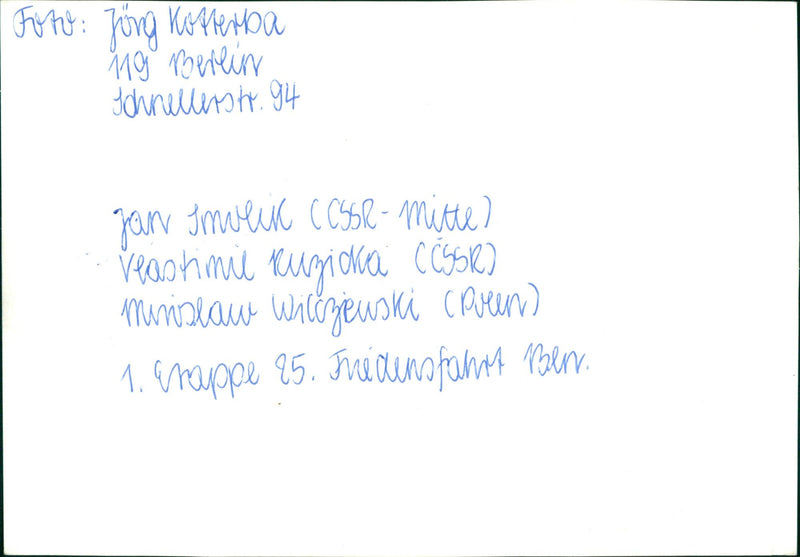 Foto: Jörg Kotterba
119 Berlin
Schnellerstr. 94
Jan Smolik (ČSSR-Mitte)
Vlastimil Ruzicka (ČSSR)
Miroslaw Wilczewski (Polen)
1. Etappe 25. Friedensfahrt Ber.